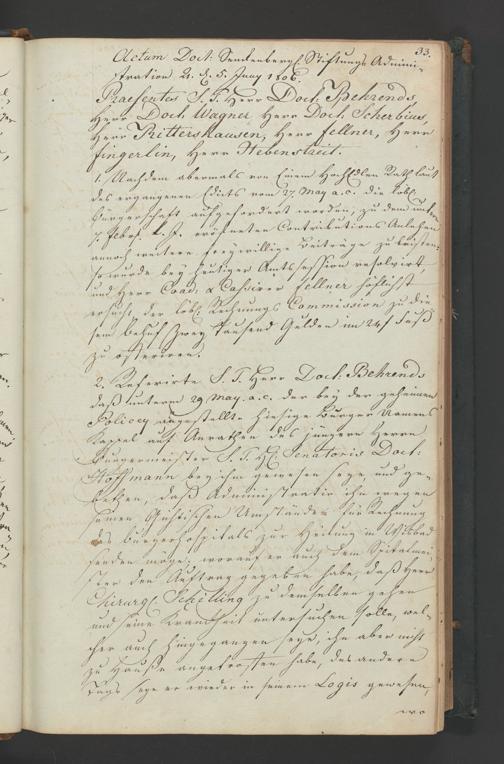 33.
Actum Doct: Senckenberg. Stiftungs Admini-
stration 2. d. 5. Juny 1806.
Praesentes S. T. Herr Doct. Behrends,
Herr Doct. Wagner, Herr Doct. Scherbius,
Herr Rittershausen, Herr Fellner, Herr
Fingerlin, Herr Hebenstreit.
1. Nachdem abermals von Einem HochEdlen Rath laut
des ergangenen Edicts vom 27. May a. c. die löbl.
Bürgerschaft aufgefordert worden, zu dem unterm
7. Febr. eröfneten Contributions Anlehen
annoch weitere freywillige Beiträge zu leisten,
so wurde bey heutiger Amtssession resolvirt,
und Herr Coad. & Cassirer Fellner höflichst
ersucht, der löbl. Rechnungs Commission zu die
sem Behuf Zwey Tausend Gulden im 24 f Fuß
zu offeriren.
2. Referirte S. T. Herr Doct. Behrends
daß unterm 29 May. a. c. der bey der geheimen
Policey angestellte hiesige Burger Namens
Kappel auf Anrathen des jüngern Herrn
Burgermeister S. T. H. Senatoris Doct:
Hoffmann bey ihm gewesen seye, und ge-
bethen, daß Administratio ihn wegen
seinen Umständen für Rechnung
des Bürgerhospitals zur Heilung in Wisbad
senden möge, worauf er auch dem Spitalmei-
ster den Auftrag gegeben habe, daß Herr
Chirurg. Schilling zu demselben gehen
und seine Krankheit untersuchen solle, wel-
cher auch hingegangen seye, ihn aber nicht
zu Hauße angetroffen habe, des andern
Tags seye er wieder in seinem Logis gewesen,
wo